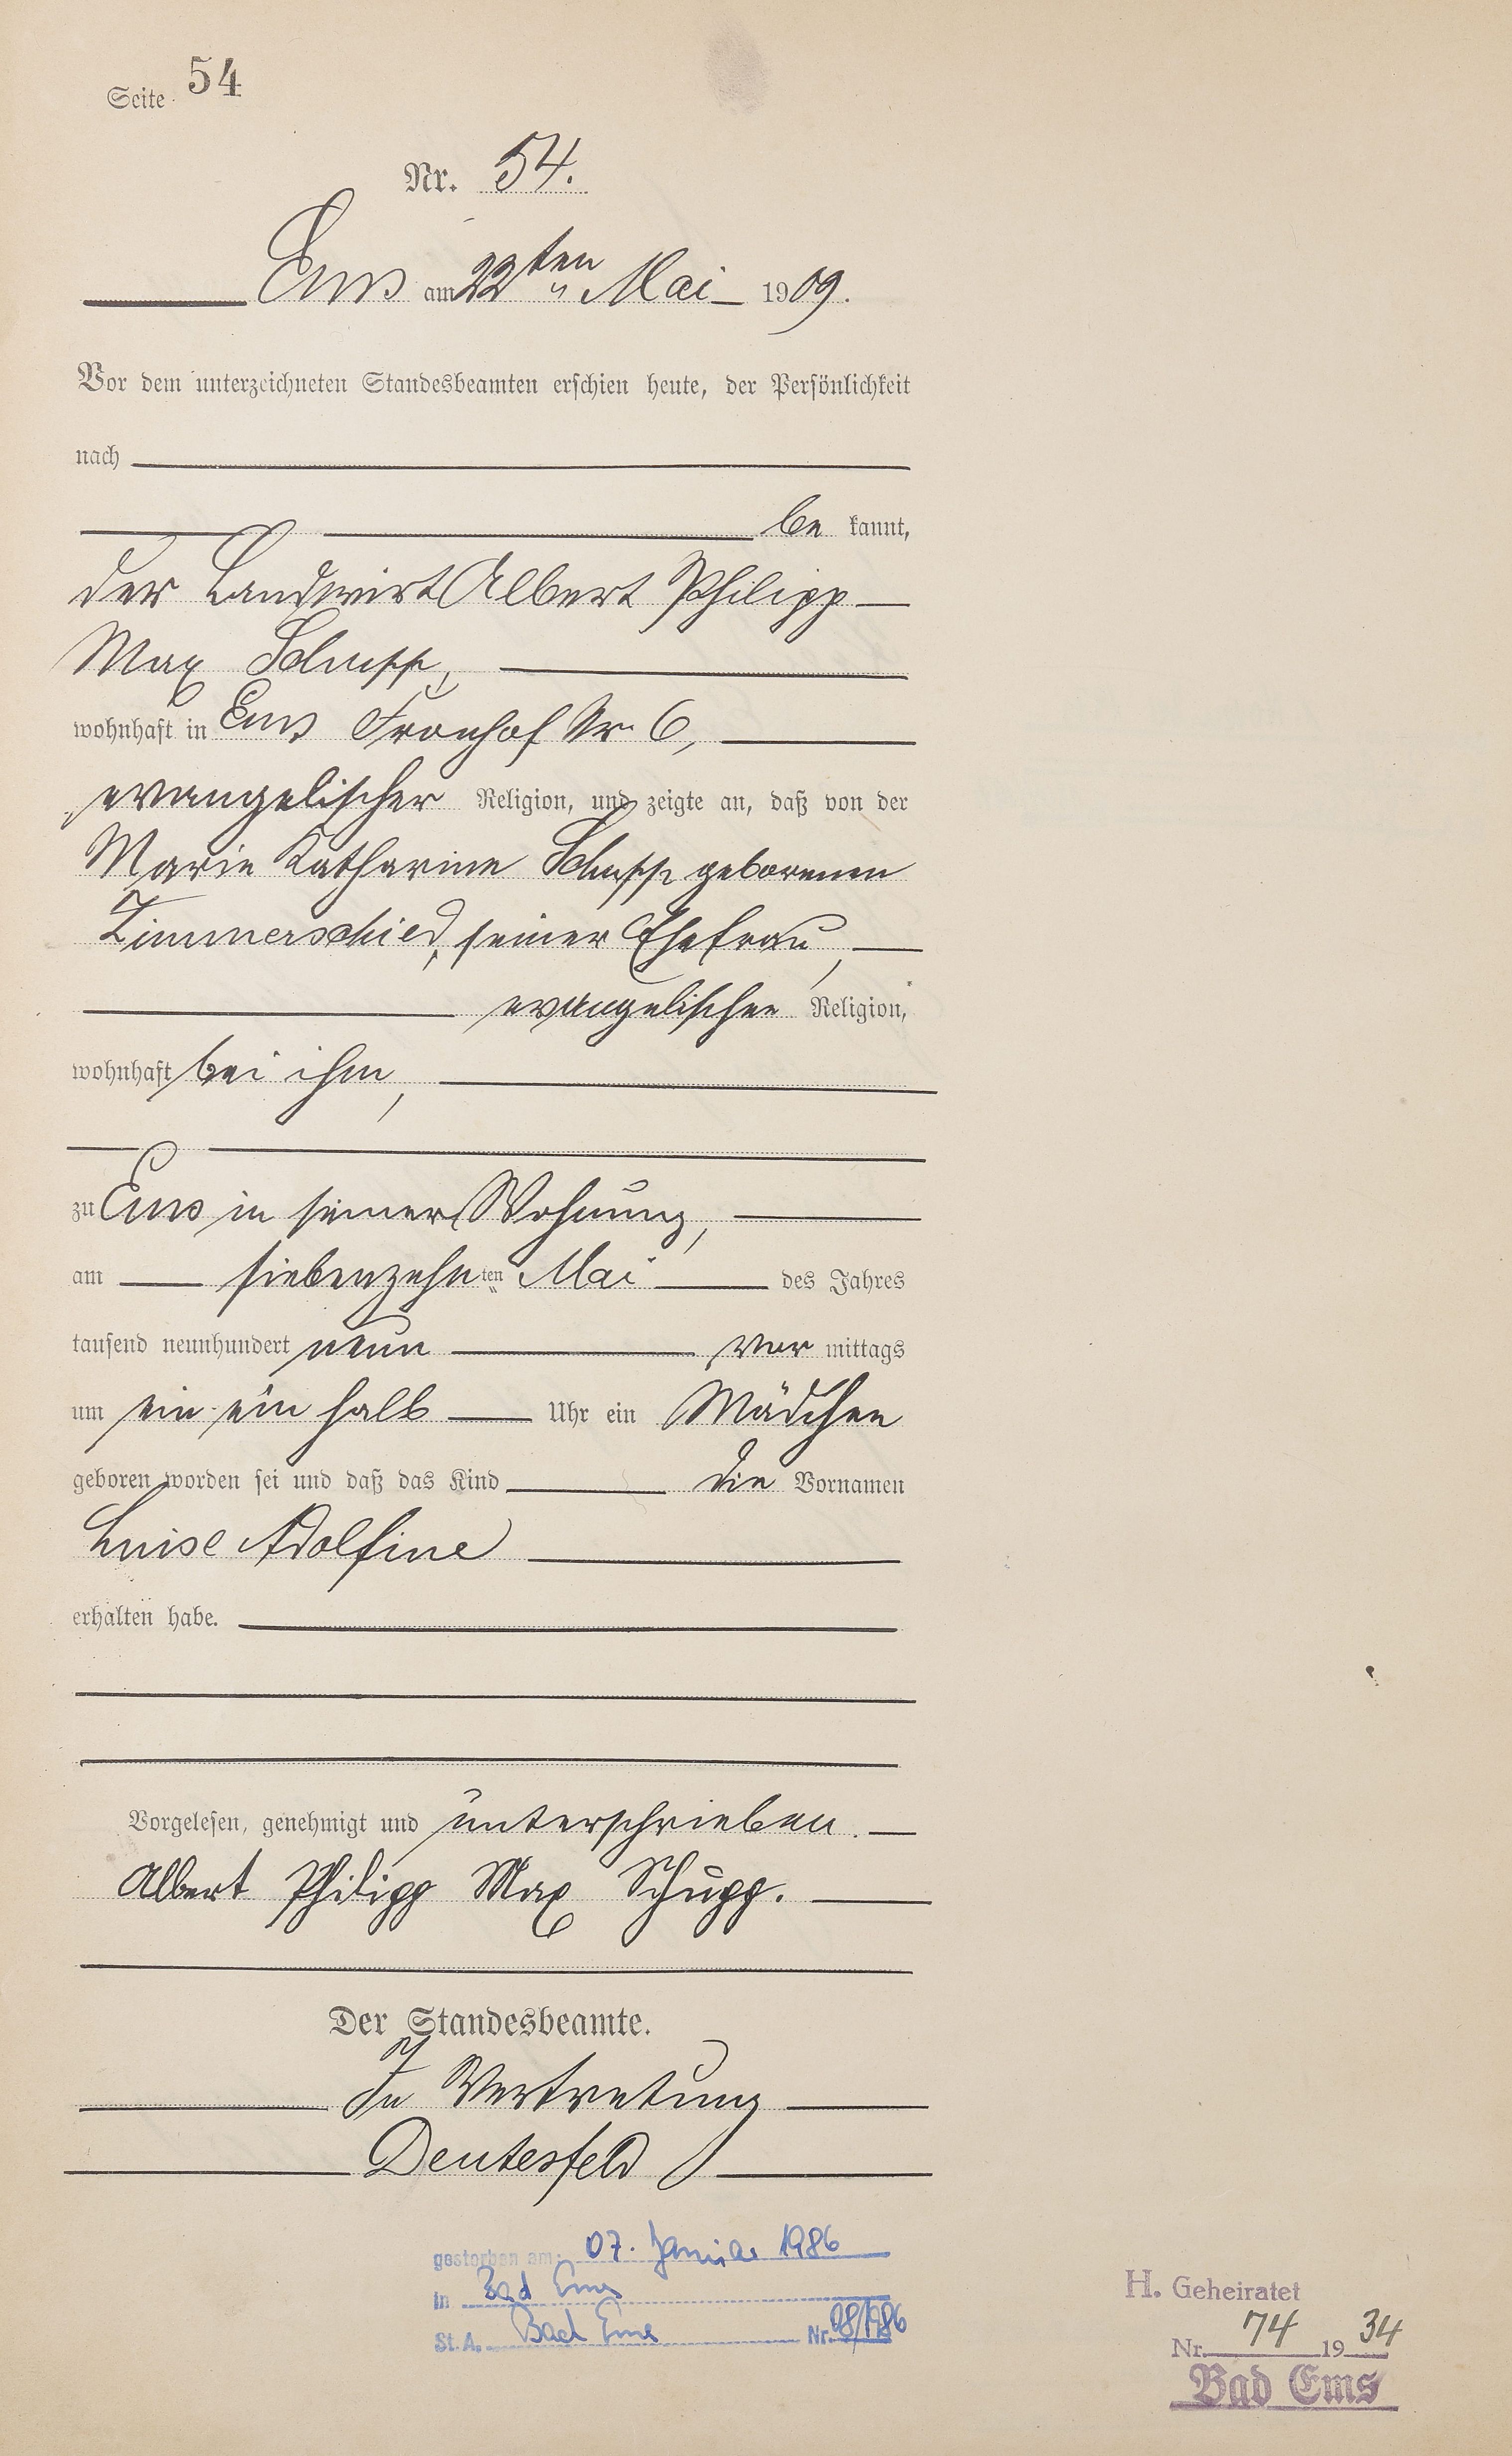 Seite 54
Nr. 54.
Ems am 22ten Mai 1909.
Vor dem unterzeichneten Standesbeamten erschien heute, der Persönlichkeit
nach
be kannt,
der Landwirt Albert Philipp
Max Schupp,
wohnhaft in Ems Fronhof Nr. 6,
evangelischer Religion, und zeigte an, daß von der
Marie Katharine Schupp geborenen
Zimmerschied, seiner Ehefrau,
evangelischen Religion,
wohnhaft bei ihm,
zu Ems in seiner Wohnung,
am siebenzehnten Mai des Jahres
tausend neunhundert neun vor mittags
um ein ein halb Uhr ein Mädchen
geboren worden sei und daß das Kind die Vornamen
Luise Adolfine
erhalten habe.
Vorgelesen, genehmigt und unterschrieben.
Albert Philipp Max Schupp.
Der Standesbeamte.
In Vertretung
Deutesfeld
gestorben am: 07. Januar 1986
in Bad Ems
St. A. Bad Ems Nr. 08/1986
H. Geheiratet
Nr. 74 1934
Bad Ems